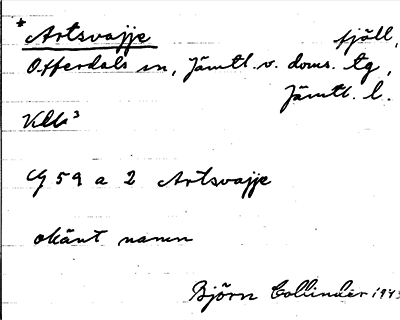 * Artsvajje fjäll,
Offerdals sn, Jämtl. v. doms. tg,
Jämtl. l.
G 59 a 2 Artsvajje
okänt namn
Björn Collinder 1943